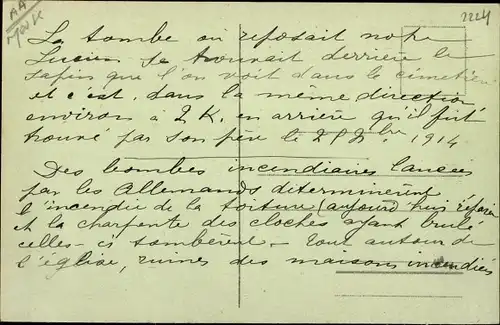 AA
MWK
2224
La tombe où reposait notre
Lucien se trouvait derrière le
sapin que l'on voit dans le cimetière
et c'est dans la même direction
environ à 2 K. en arrière qu'il fut
trouvé par son père le 2 1914
Des bombes incendiaires lancées
par les Allemands déterminèrent
l'incendie de la toiture (aujourd'hui réparée
et la charpente des cloches ayant brulé
celles-ci tombèrent - Tout autour de
l'église, ruines des maisons incendiées